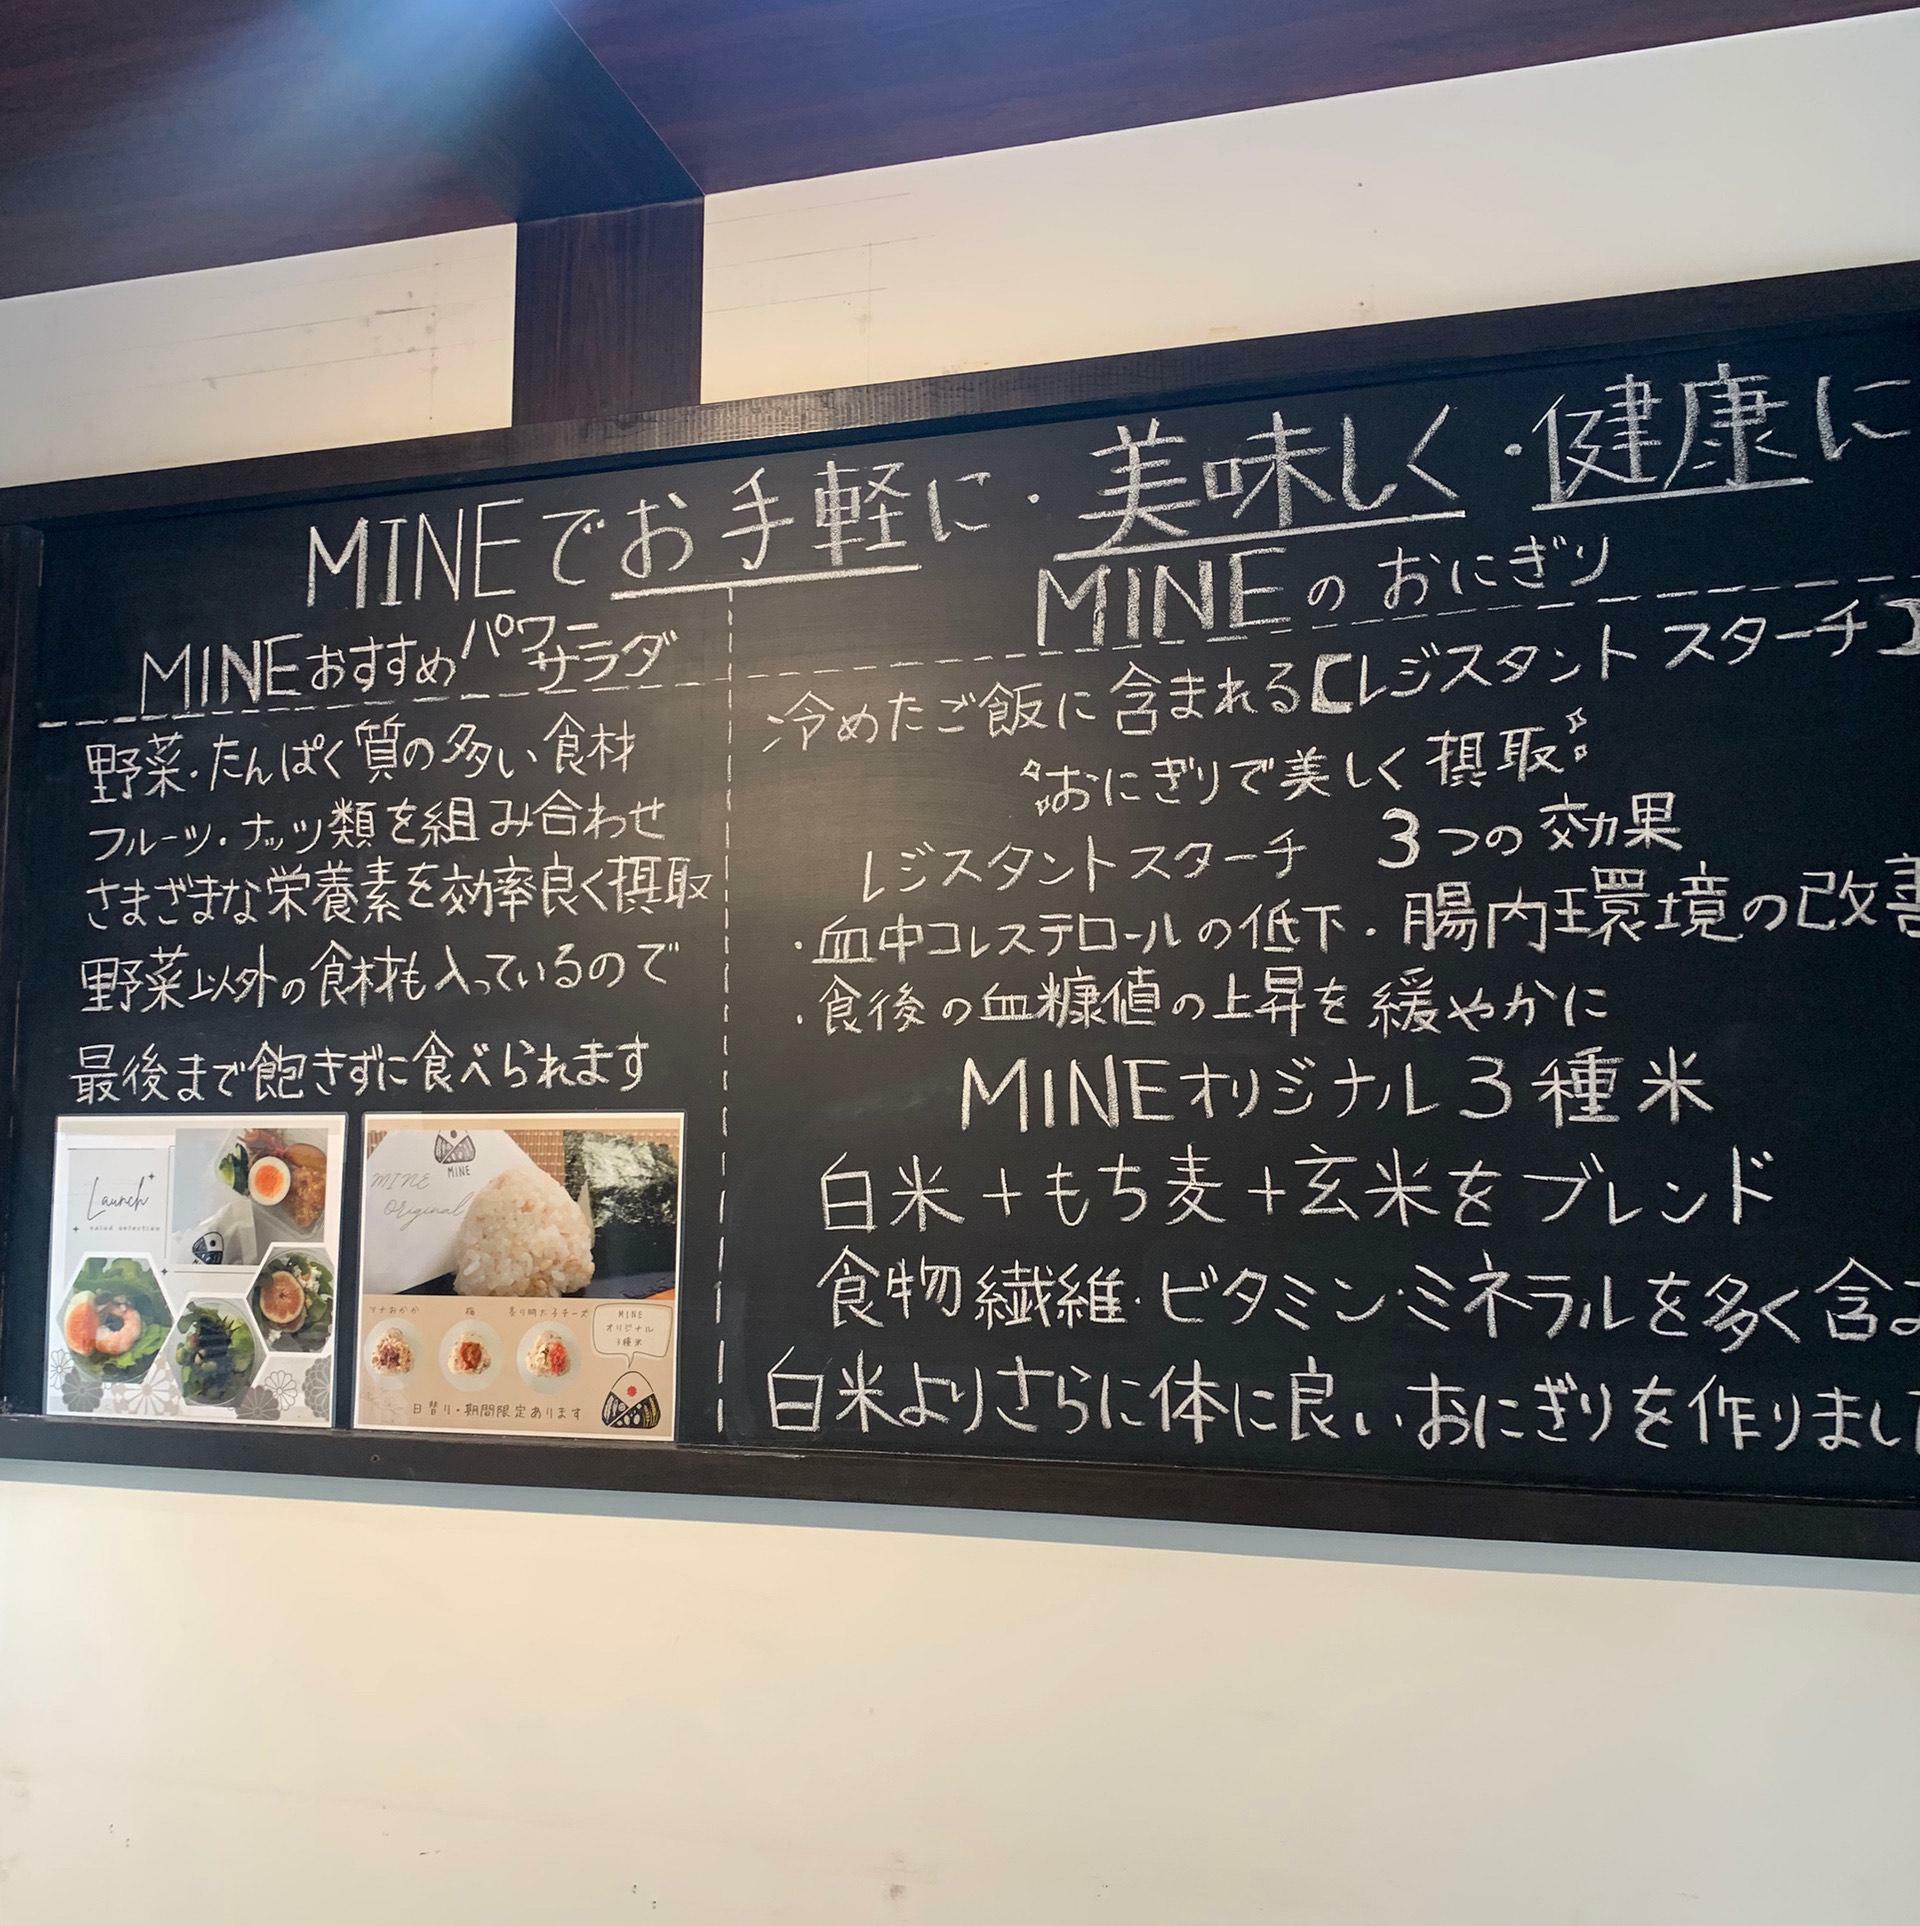 MINEでお手軽に・美味しく・健康に
MINEおすすめパワーサラダ
野菜・たんぱく質の多い食材
フルーツ・ナッツ類を組み合わせ
さまざまな栄養素を効率良く摂取
野菜以外の食材も入っているので
最後まで飽きずに食べられます
Launch
salad selection
MINE
MINE
Original
ツナおかか
梅
炙り明太子チーズ
MINE
オリジナル
3種米
日替り・期間限定あります
MINEのおにぎり
冷めたご飯に含まれる【レジスタントスターチ】
おにぎりで美しく摂取
レジスタントスターチ 3つの効果
・血中コレステロールの低下・腸内環境の改善
・食後の血糖値の上昇を緩やかに
MINEオリジナル3種米
白米+もち麦+玄米をブレンド
食物繊維・ビタミン・ミネラルを多く含
白米よりさらに体に良いおにぎりを作りまし